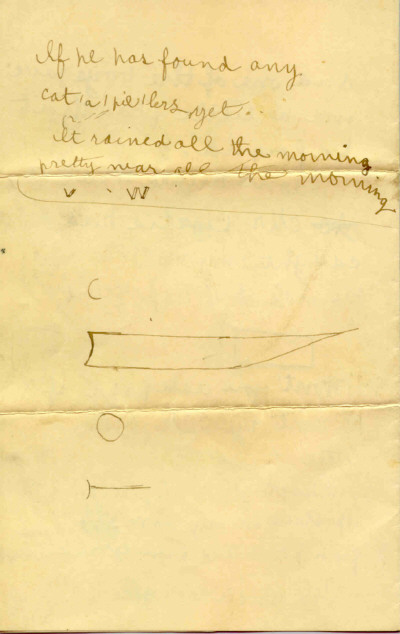 If he has found any
cat'a'pie'lers yet.
It rained all the morning
pretty near all the morning
v W